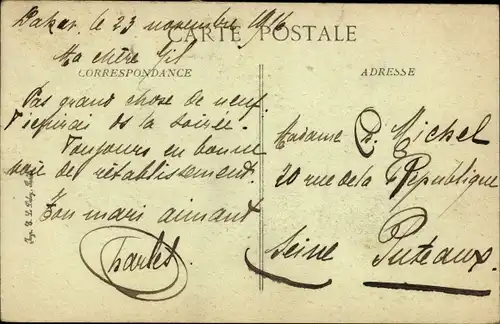 Dakar, le 23 novembre 1916
CARTE POSTALE
Ma chère Gil
CORRESPONDANCE
ADRESSE
Pas grand chose de neuf.
de la soirée.
Toujours en bonne
voie de rétablissement.
Ton mari aimant
Charles
Madame Ch. Michel
20 rue de la République
Puteaux
Seine